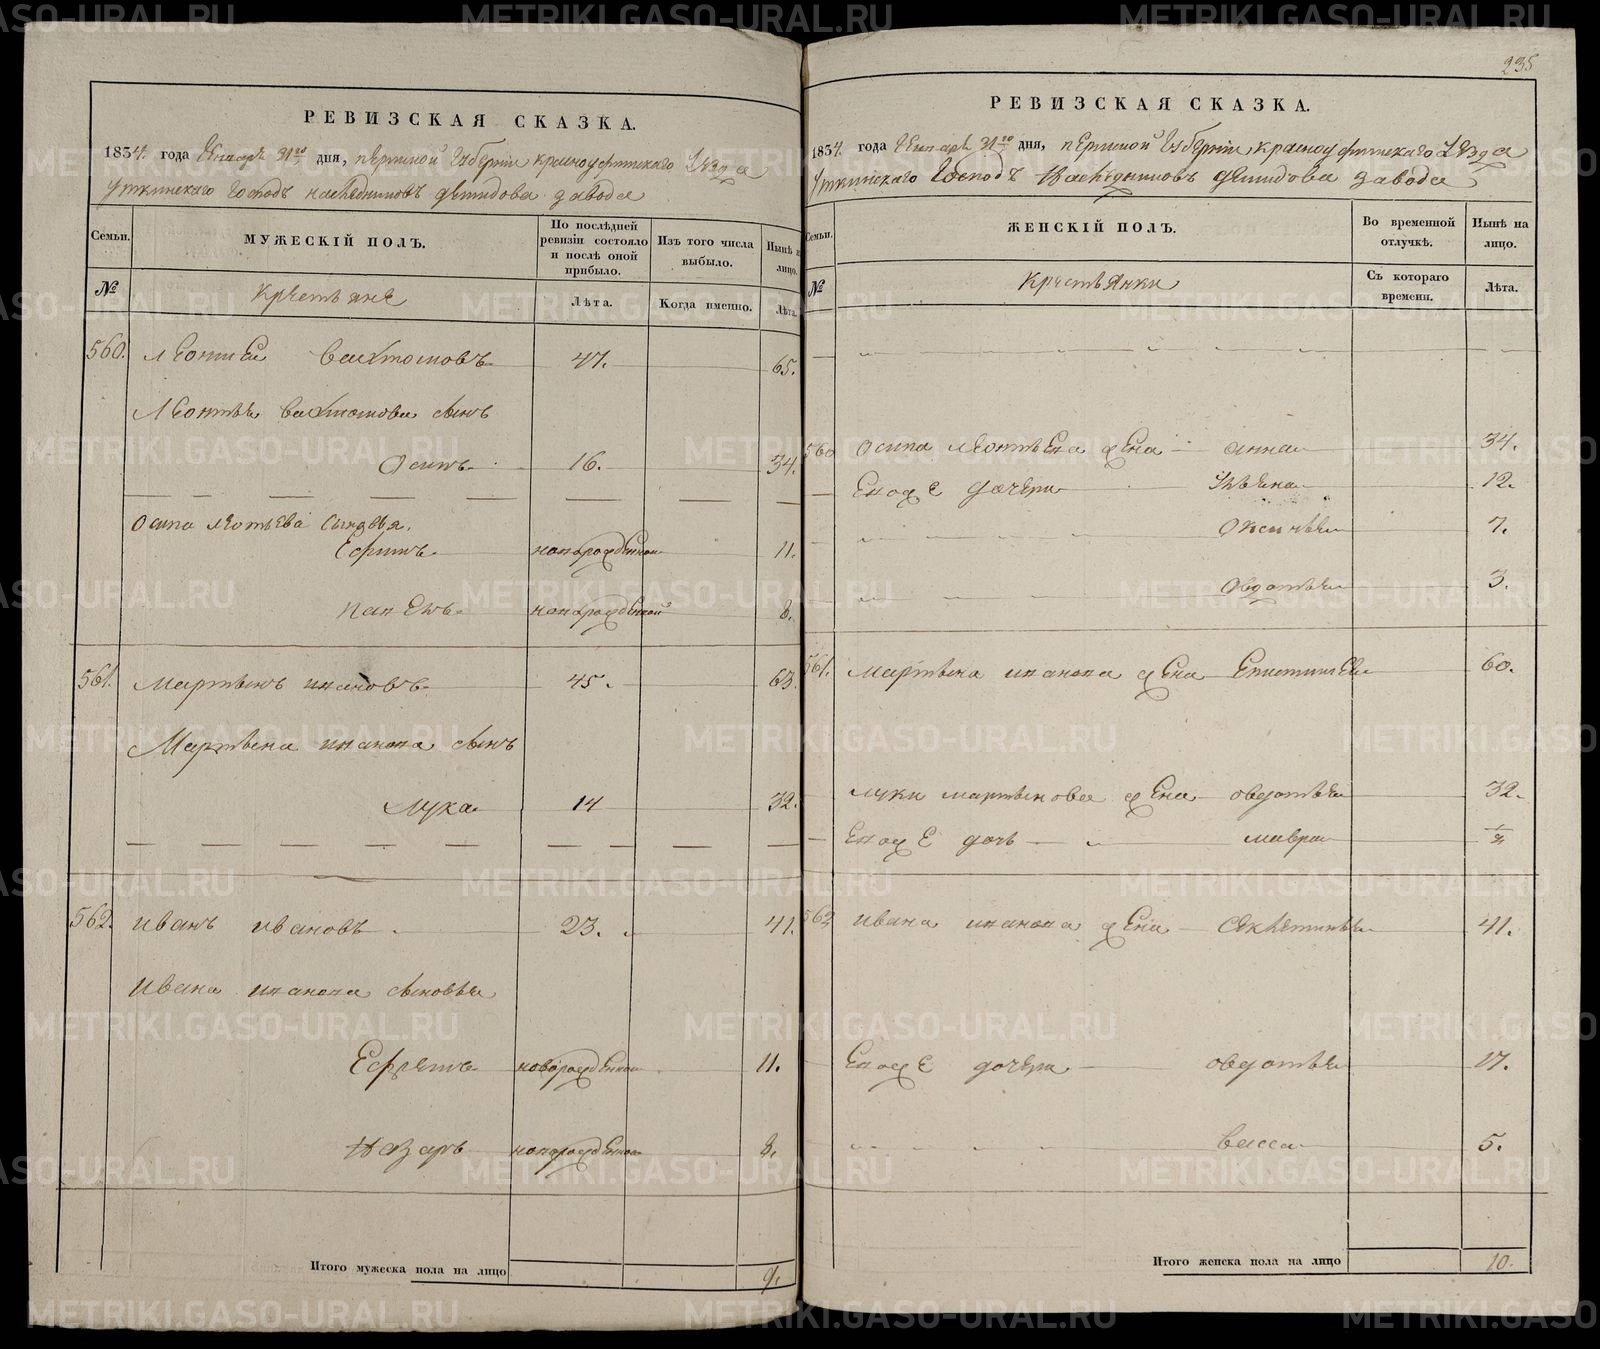 235
РЕВИЗСКАЯ СКАЗКА.
1834. года Генваря 31го дня, пермской губернии красноуфимского уезда
Уткинскаго Господъ наследниковъ демидова завода
Семьи.
МУЖЕСКІЙ ПОЛЪ.
По послѣдней ревизіи состояло и послѣ оной прибыло.
Изъ того числа выбыло.
Нынѣ на лицо.
№
крестьяне
Лѣта.
Когда именно.
Лѣта.
560. леонтей 47. 65.
сынъ
Осипъ 16. 34.
Осипа леонтьева сыновья.
Ефимъ новорожденной 11.
новорожденной 8.
561. Мартынъ ивановъ 45. 63.
Мартына иванова сынъ
лука 14 32.
562. иванъ ивановъ 23. 41.
ивана иванова сыновья
Ефремъ новорожденной 11.
Назаръ новорожденной 8.
Итого мужеска пола на лицо 9.
РЕВИЗСКАЯ СКАЗКА.
1834. года Генваря 31го дня, пермской губернии красноуфимского уезда
Уткинскаго Господъ Наследниковъ демидова завода
Семьи.
ЖЕНСКІЙ ПОЛЪ.
Во временной отлучкѣ.
Нынѣ на лицо.
№
крестьянки
Съ котораго времени.
Лѣта.
560 Осипа леонтьева жена анна 34.
Еноже дочери 12.
Оксинья 7.
Овдотья 3.
561. мартына иванова жена Епистимея 60.
луки мартынова жена овдотья 32.
Еноже дочь мавра
562 ивана иванова жена 41.
Еноже дочери овдотья 17.
васса 5.
Итого женска пола на лицо 10.
METRIKI.GASO-URAL.RU